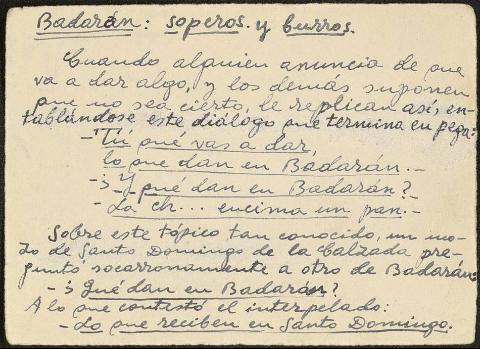 Badarán: soperos y burros.
Cuando alguien anuncia de que
va a dar algo, y los demás suponen
que no sea cierto, le replican así, en-
tablándose este diálogo que termina en pega:
-Tú qué vas a dar,
lo que dan en Badarán.-
-¿Y qué dan en Badarán?
-La ch... encima un pan.-
Sobre este tópico tan conocido, un mo-
zo de Santo Domingo de la Calzada pre-
guntó socarronamente a otro de Badarán:
-¿Qué dan en Badarán?
A lo que contestó el interpelado:
-Lo que reciben en Santo Domingo.